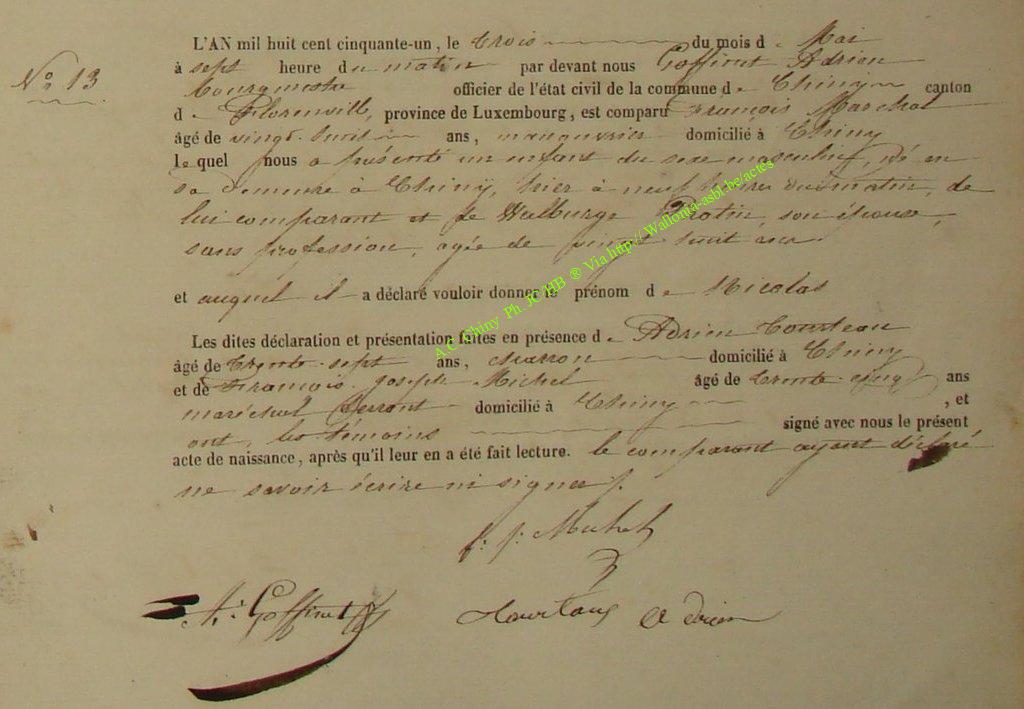 L'AN mil huit cent cinquante-un, le trois du mois de Mai
N° 13
à sept heure du matin par devant nous Goffinet Adrien
bourgmestre officier de l'état civil de la commune de Chiny canton
de Florenville, province de Luxembourg, est comparu François Marchal
âgé de vingt-huit ans, manouvrier domicilié à Chiny
lequel nous a présenté un enfant du sexe masculin, né en
sa demeure à Chiny, hier à neuf heures du matin, de
lui comparant et de Walburge Rotin, son épouse,
sans profession, agée de vingt huit ans
et auquel il a déclaré vouloir donner le prénom de Nicolas
Les dites déclaration et présentation faites en présence de Adrien
âgé de trente-sept ans, domicilié à Chiny
et de François Joseph Michel âgé de trente-cinq ans
maréchal ferrant domicilié à Chiny, et
ont, les témoins signé avec nous le présent
acte de naissance, après qu'il leur en a été fait lecture. le comparant ayant déclaré
ne savoir écrire ni signer.
f: j: Michel
A: Goffinet Adrien
A.C. Chiny Ph. JC HB ® Via http://Wallonia-asbl.be/actes